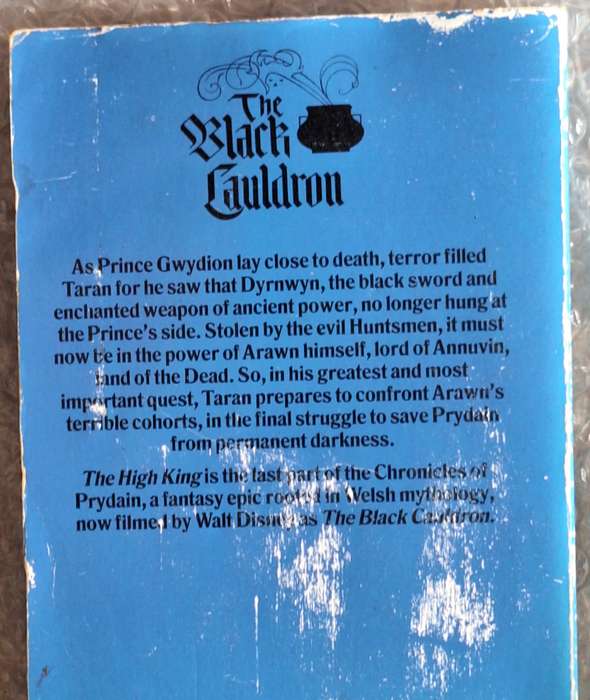 The
Black
Cauldron
As Prince Gwydion lay close to death, terror filled
Taran for he saw that Dyrnwyn, the black sword and
enchanted weapon of ancient power, no longer hung at
the Prince's side. Stolen by the evil Huntsmen, it must
now be in the power of Arawn himself, lord of Annuvin,
land of the Dead. So, in his greatest and most
important quest, Taran prepares to confront Arawn's
terrible cohorts, in the final struggle to save Prydain
from permanent darkness.
The High King is the last part of the Chronicles of
Prydain, a fantasy epic rooted in Welsh mythology,
now filmed by Walt Disney as The Black Cauldron.